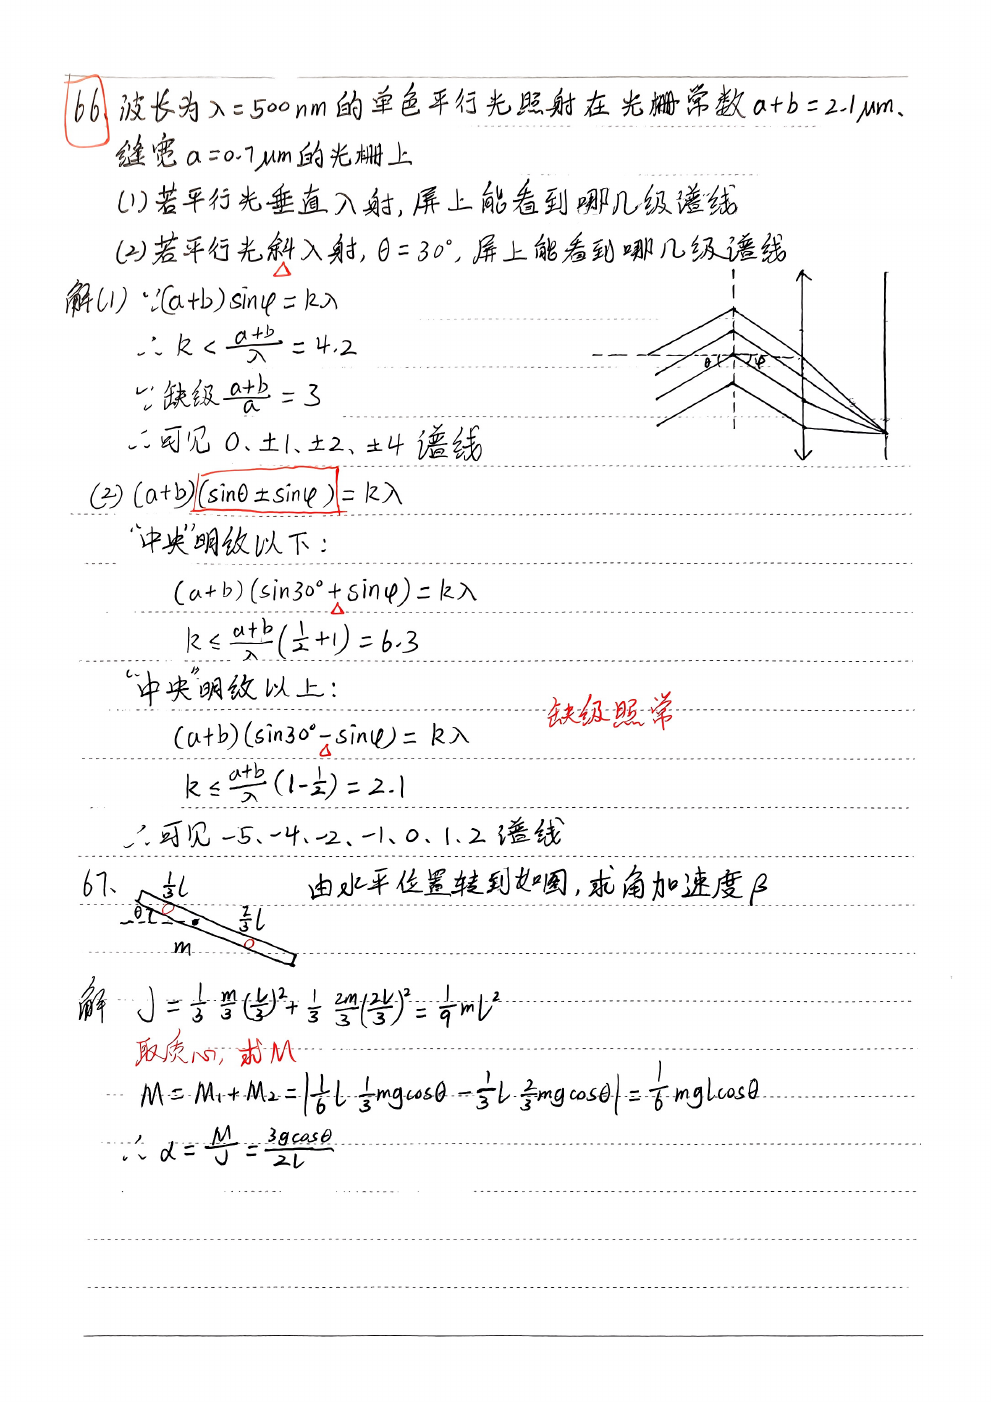 66、波长为λ=500nm的单色平行光照射在光栅常数a+b=2.1μm、
缝宽a=0.7μm的光栅上
(1)若平行光垂直入射,屏上能看到哪几级谱线
(2)若平行光斜入射,θ=30°,屏上能看到哪几级谱线
解(1) ∵(a+b)sinφ=kλ
∴k<(a+b)/λ=4.2
∵缺级(a+b)/a=3
∴可见 0、±1、±2、±4 谱线
θ φ
(2) (a+b)(sinθ±sinφ)=kλ
“中央”明纹以下:
(a+b)(sin30°+sinφ)=kλ
k≤(a+b)/λ(1/2+1)=6.3
“中央”明纹以上:
缺级照常
(a+b)(sin30°-sinφ)=kλ
k≤(a+b)/λ(1-1/2)=2.1
∴可见-5、-4、-2、-1、0、1、2谱线
67、 1/3l 由水平位置转到如图,求角加速度β
θ 2/3l
m
解 J=1/3 m/3(l/3)²+1/3 2m/3(2l/3)²=1/9ml²
取质心,求M
M=M₁+M₂=|1/6l 1/3mgcosθ-1/3l 2/3mgcosθ|=1/6mglcosθ
∴α=M/J=3gcosθ/2l